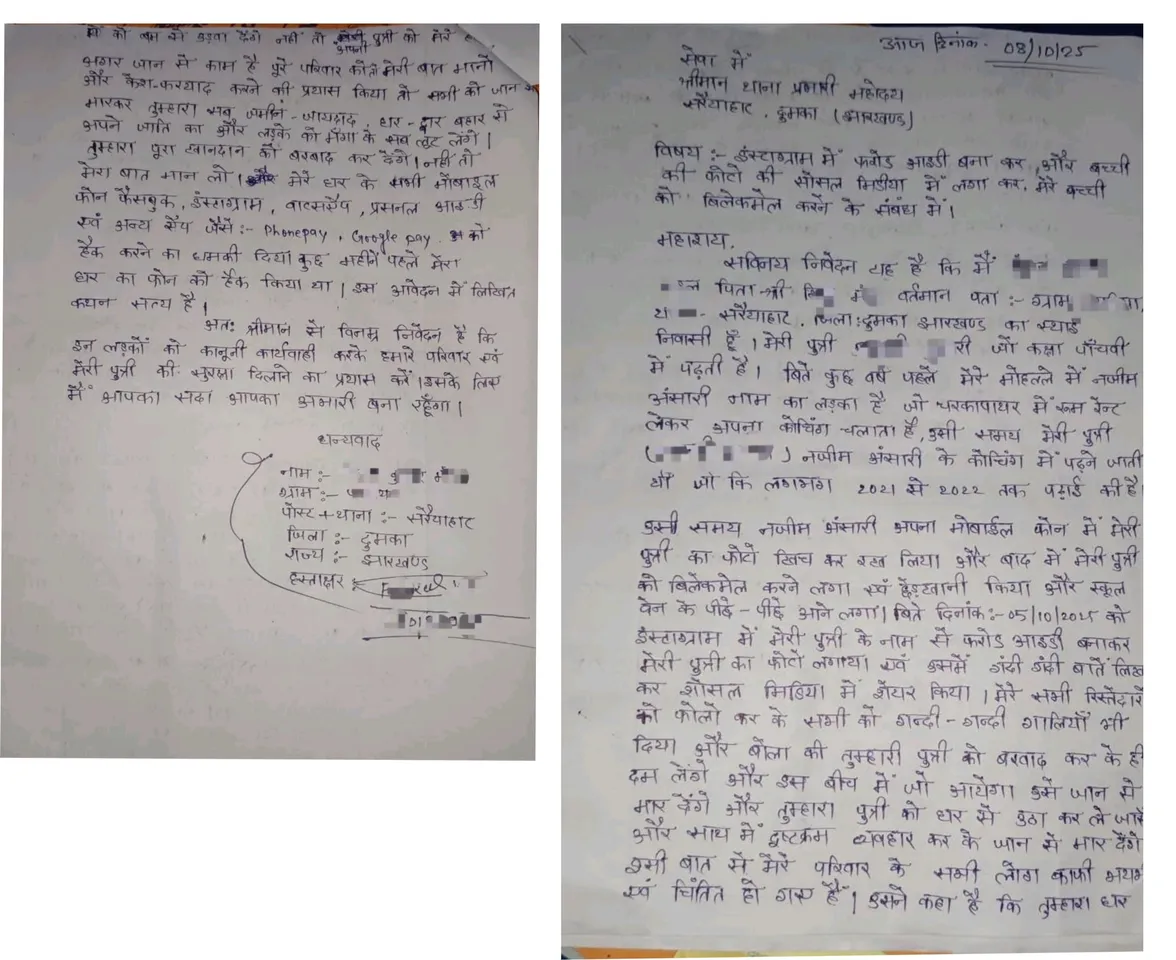 आज दिनांक - 08/10/25
सेवा में
श्रीमान थाना प्रभारी महोदय
सरैयाहाट, दुमका (झारखण्ड)
विषय :- इंस्टाग्राम में फरोड आइडी बना कर, और बच्ची
की फोटो की सोसल मिडीया में लगा कर, मेरे बच्ची
को बिलेकमेल करने के संबंध में।
महाशय,
सविनय निवेदन यह है कि मैं
पिता-श्री वर्तमान पता :- ग्राम
सरैयाहाट, जिला:दुमका झारखण्ड का स्थाई
निवासी हूँ। मेरी पुत्री री जो कक्षा पाँचवी
में पढ़ती है। बिते कुछ वर्ष पहले मेरे मोहल्ले में नजीम
अंसारी नाम का लड़का है जो चरकापाथर में रूम रेन्ट
लेकर अपना कोचिंग चलाता है, उसी समय मेरी पुत्री
( ) नजीम अंसारी के कोचिंग में पढ़ने जाती
थी जो कि लगभग 2021 से 2022 तक पढ़ाई की है
उसी समय नजीम अंसारी अपना मोबाईल फोन में मेरी
पुत्री का फोटो खिच कर रख लिया और बाद में मेरी पुत्री
को बिलेकमेल करने लगा एवं छेड़खानी किया और स्कूल
वेन के पीछे-पीछे आने लगा। बिते दिनांक:-05/10/2025 को
इंस्टाग्राम में मेरी पुत्री के नाम से फरोड आइडी बनाकर
मेरी पुत्री का फोटो लगाया एवं उसमें गंदी गंदी बातें लिख
कर शोसल मिडिया में शेयर किया। मेरे सभी रिस्तेदारों
को फोलो कर के सभी को गन्दी-गन्दी गालियाँ भी
दिया और बोला की तुम्हारी पुत्री को बरबाद कर के ही
दम लेंगे और इस बीच में जो आयेंगा उसे जान से
मार देंगे और तुम्हारा पुत्री को घर से उठा कर ले जायें
और साथ में दुष्टक्रम व्यवहार कर के जान से मार देंगे
इसी बात से मेरे परिवार के सभी लोग काफी भयभ
एवं चिंतित हो गए हैं। उसने कहा है कि तुम्हारा घर
को बम से उड़वा देंगे नहीं तो अपनी पुत्री को मेरे ह
अगर जान में काम है पुरे परिवार को तो मेरी बात मानों
और केश-फरयाद करने की प्रयास किया तो सभी को जान
मारकर तुम्हारा सब जमीन-जायदाद, घर-द्वार बहार से
अपने जाति का और लड़के को मँगा के सब लूट लेंगे।
तुम्हारा पूरा खानदान को बरबाद कर देंगे। नहीं तो
मेरा बात मान लो। और मेरे घर के सभी मोबाइल
फोन फैसबुक, इंस्टाग्राम, वाटसऐप, प्रसनल आइडी
एवं अन्य ऐप जैसे:- Phonepay, Google pay को
हैक करने का धमकी दिया कुछ महीने पहले मेरा
घर का फोन को हैक किया था। इस आवेदन में लिखित
कथन सत्य है।
अत: श्रीमान से विनम्र निवेदन है कि
इन लड़कों को कानूनी कार्यवाही करके हमारे परिवार एवं
मेरी पुत्री की सुरक्षा दिलाने का प्रयास करें। इसके लिए
मैं आपका सदा आपका अभारी बना रहूँगा।
धन्यवाद
नाम:-
ग्राम:-
पोस्ट+थाना:- सरैयाहाट
जिला:- दुमका
राज्य:- झारखण्ड
हस्ताक्षर